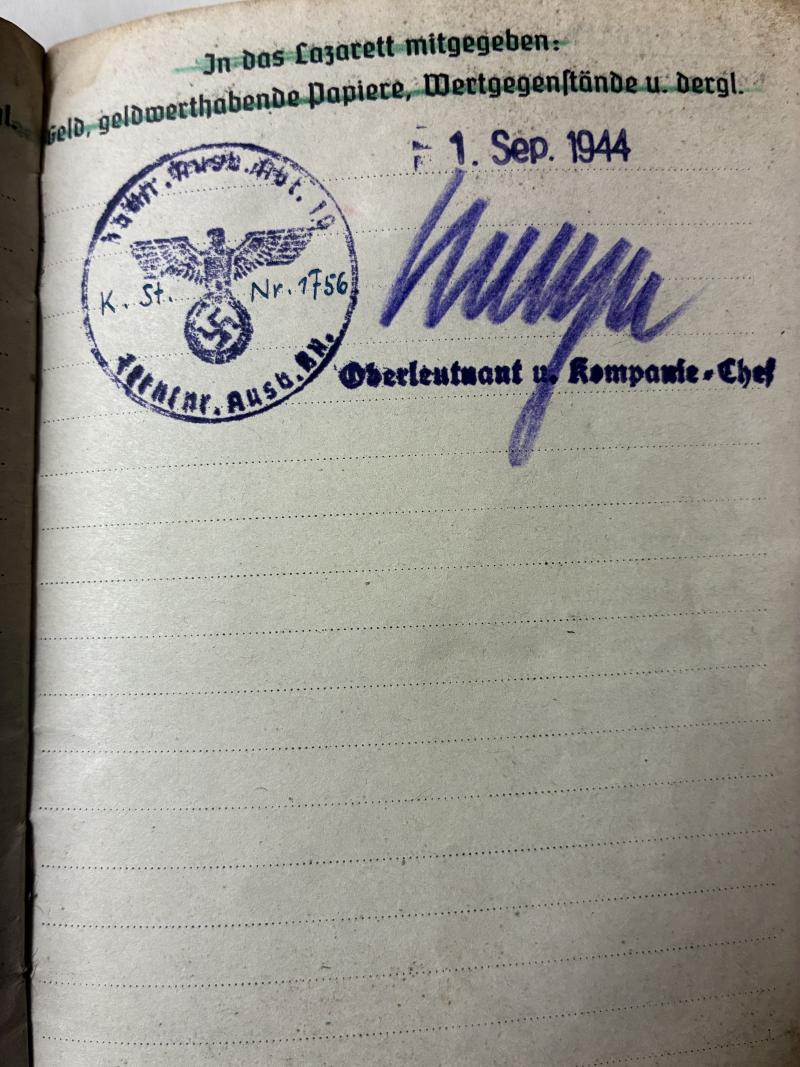 In das Lazarett mitgegeben:
Geld, geldwerthabende Papiere, Wertgegenstände u. dergl.
1. Sep. 1944
Ausb. Abt. 10
K. St. Nr. 1756
Ausb.
Oberleutnant u. Kompanie-Chef